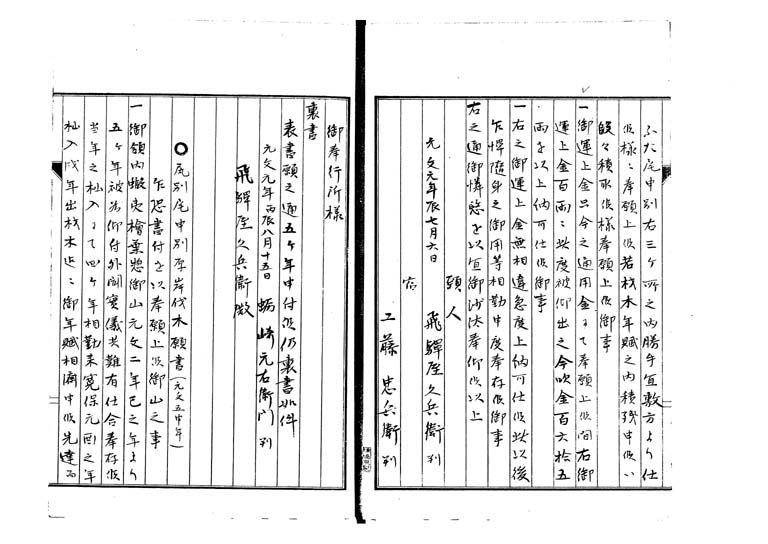 ふた尾申別右三ヶ所之内勝手宜敷方より仕
候様ニ奉願上候若材木年賦之内積残申候ハ
段々積取候様奉願上候御事
一御運上金只今之通用金ニて奉願上候間右御
運上金百両ニ此度被仰出之今吹金百六拾五
両を以上納可仕候御事
一右之御運上金無相違急度上納可仕候此以後
乍憚随身之御用等相勤申度奉存候御事
右之通御憐愍を以宜御沙汰奉仰候以上
願人
元文元年辰七月六日
飛騨屋久兵衛判
工藤忠兵衛判
御奉行所様
裏書
表書願之通五ヶ年申付候仍裏書如件
元文元年丙辰八月十五日 蛎崎元右衛門判
飛騨屋久兵衛殿
○尻別尾申別厚岸伐木願書(元文五申年)
乍恐書付を以奉願上候御山之事
一御領内蝦夷檜葉惣御山元文二年巳之年より
五ヶ年被為仰付外聞実儀共難有仕合奉存候
当年之杣入ニて四ヶ年相勤来寛保元酉之年
杣入戌年出材木迄ニ御年賦相済申候先達而